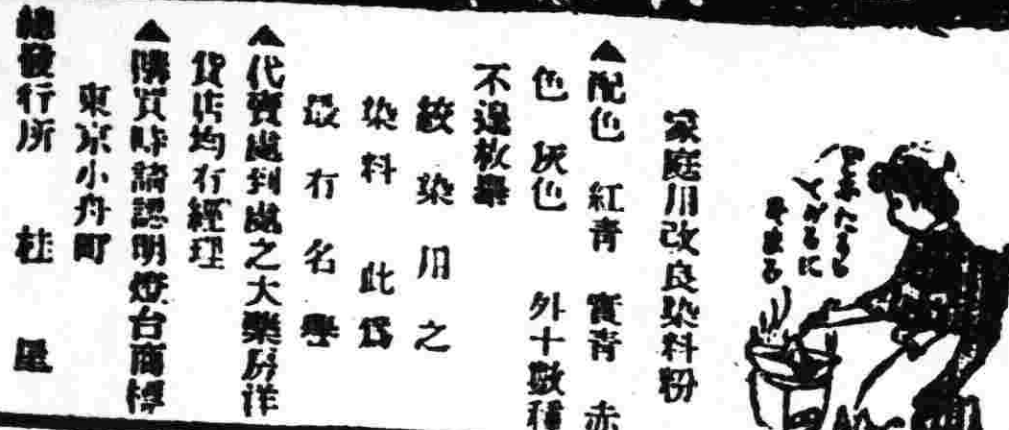 家庭用改良染料粉
▲配色 紅青 實青 赤
色 灰色 外十數種
不遑枚舉
絞染用之
染料 此爲
最有名譽
▲代賣處到處之大藥房洋
貨店均有經理
▲購買時請認明燈台商標
東京小舟町
總發行所 桂屋